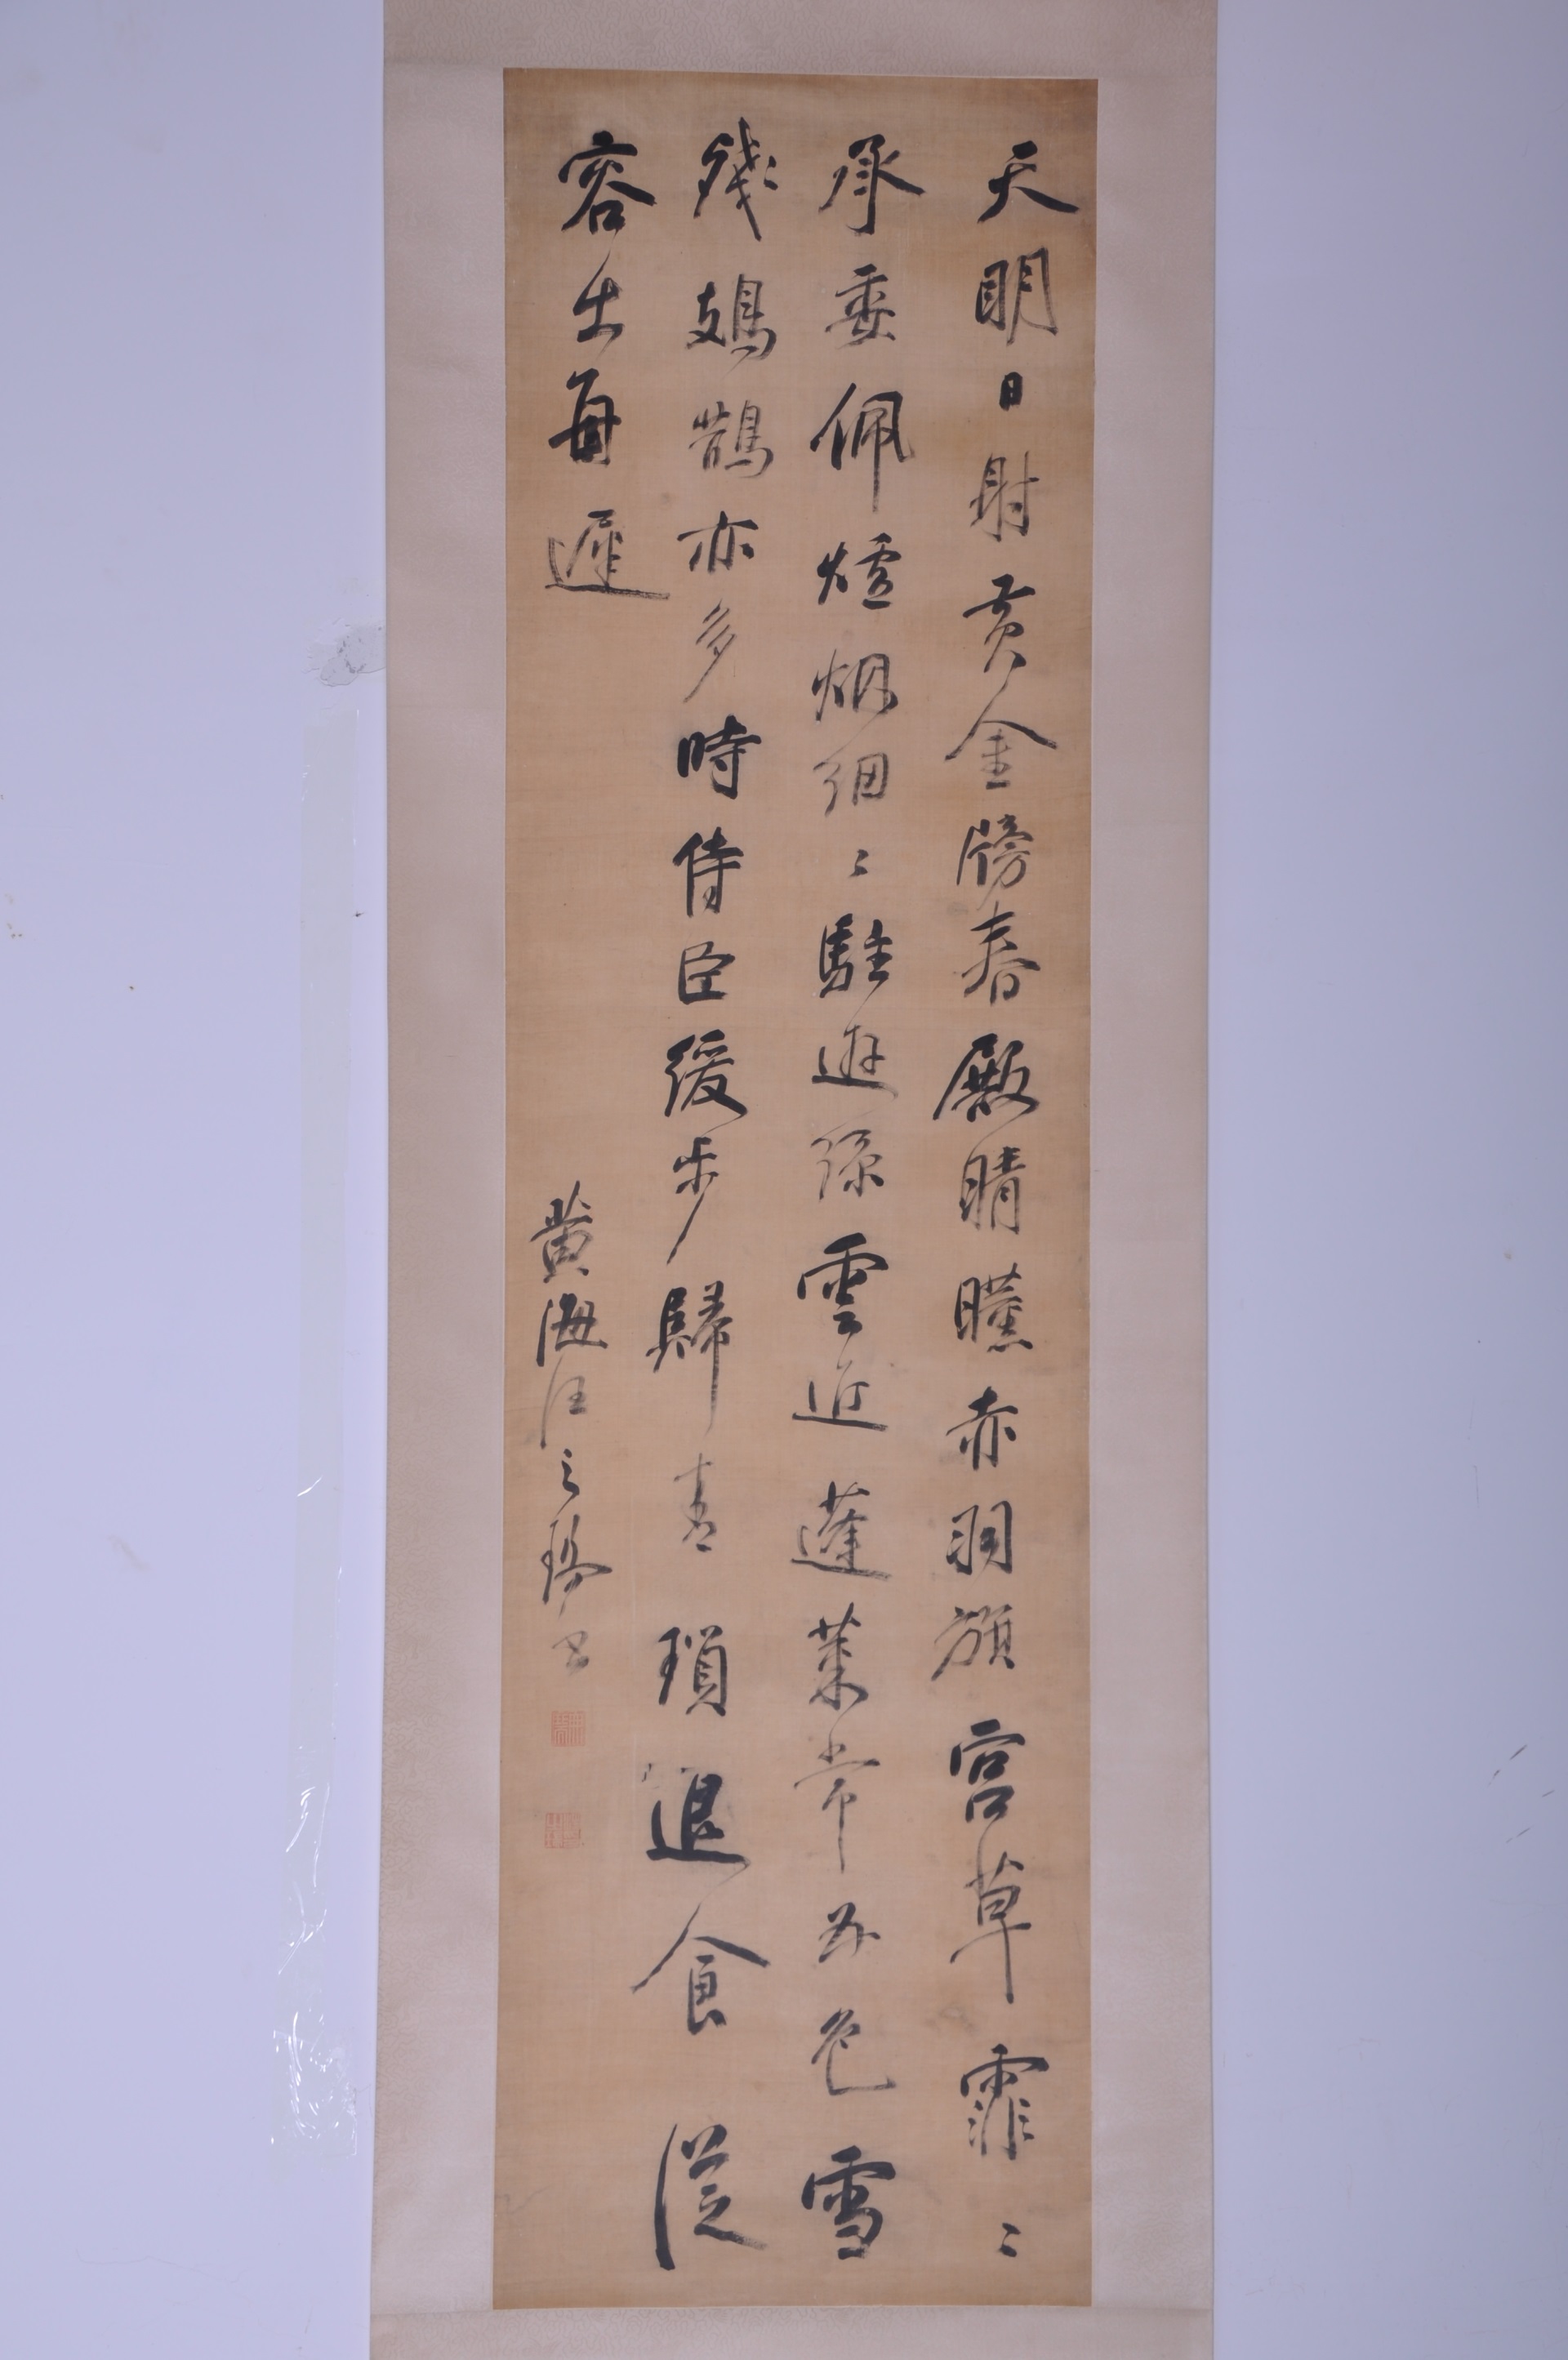 天明日射黃金牓春殿晴曛赤羽旗宮草霏〻
承委佩爐烟細〻駐遊絲雲近蓬萊常五色雪
殘鳷鵲亦多時侍臣緩步歸青瑣退食從
容出每遲
黃海汪之